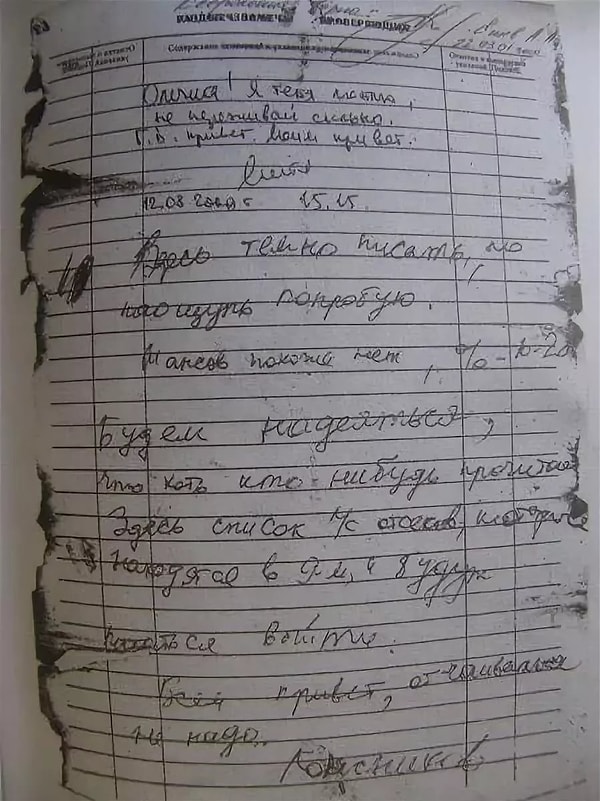 22.03.01
Олечка! Я тебя люблю,
не переживай сильно.
Г.В. привет. Моим привет.
Митя
12.08 2000 г 15.15.
Здесь темно писать, но
наощупь попробую.
Шансов похоже нет, % - 10-20
Будем надеяться,
что хоть кто-нибудь прочитает
Здесь список л/с отсеков, которые
находятся в 9-м, и будут
пытаться выйти.
Всем привет, отчаиваться
не надо.
Колесников